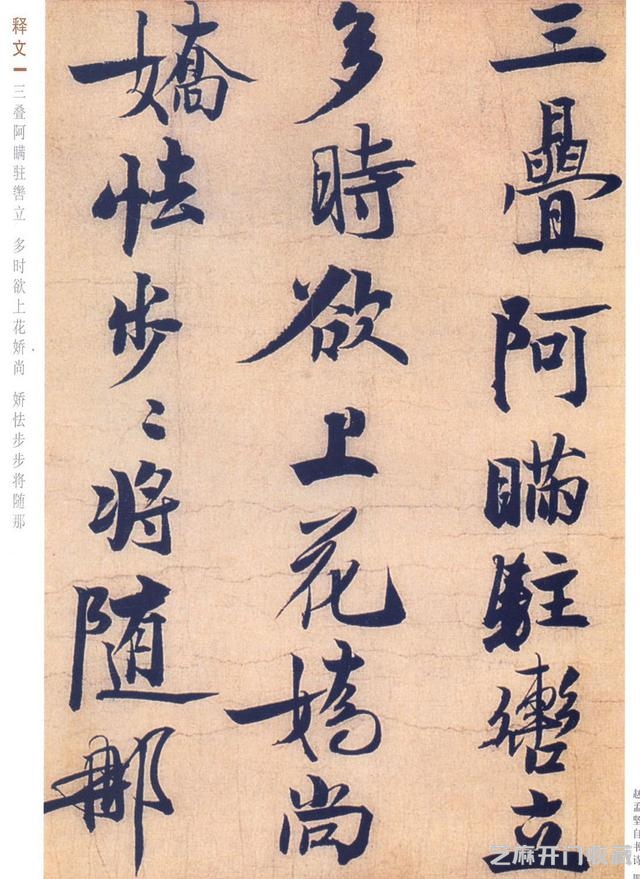 三疊阿瞞駐轡立
多時欲上花嬌尚
嬌怯步〻將随那
释文
三叠阿瞒驻辔立 多时欲上花娇尚 娇怯步步将随那
赵孟坚自书诗
艺麻开门收藏